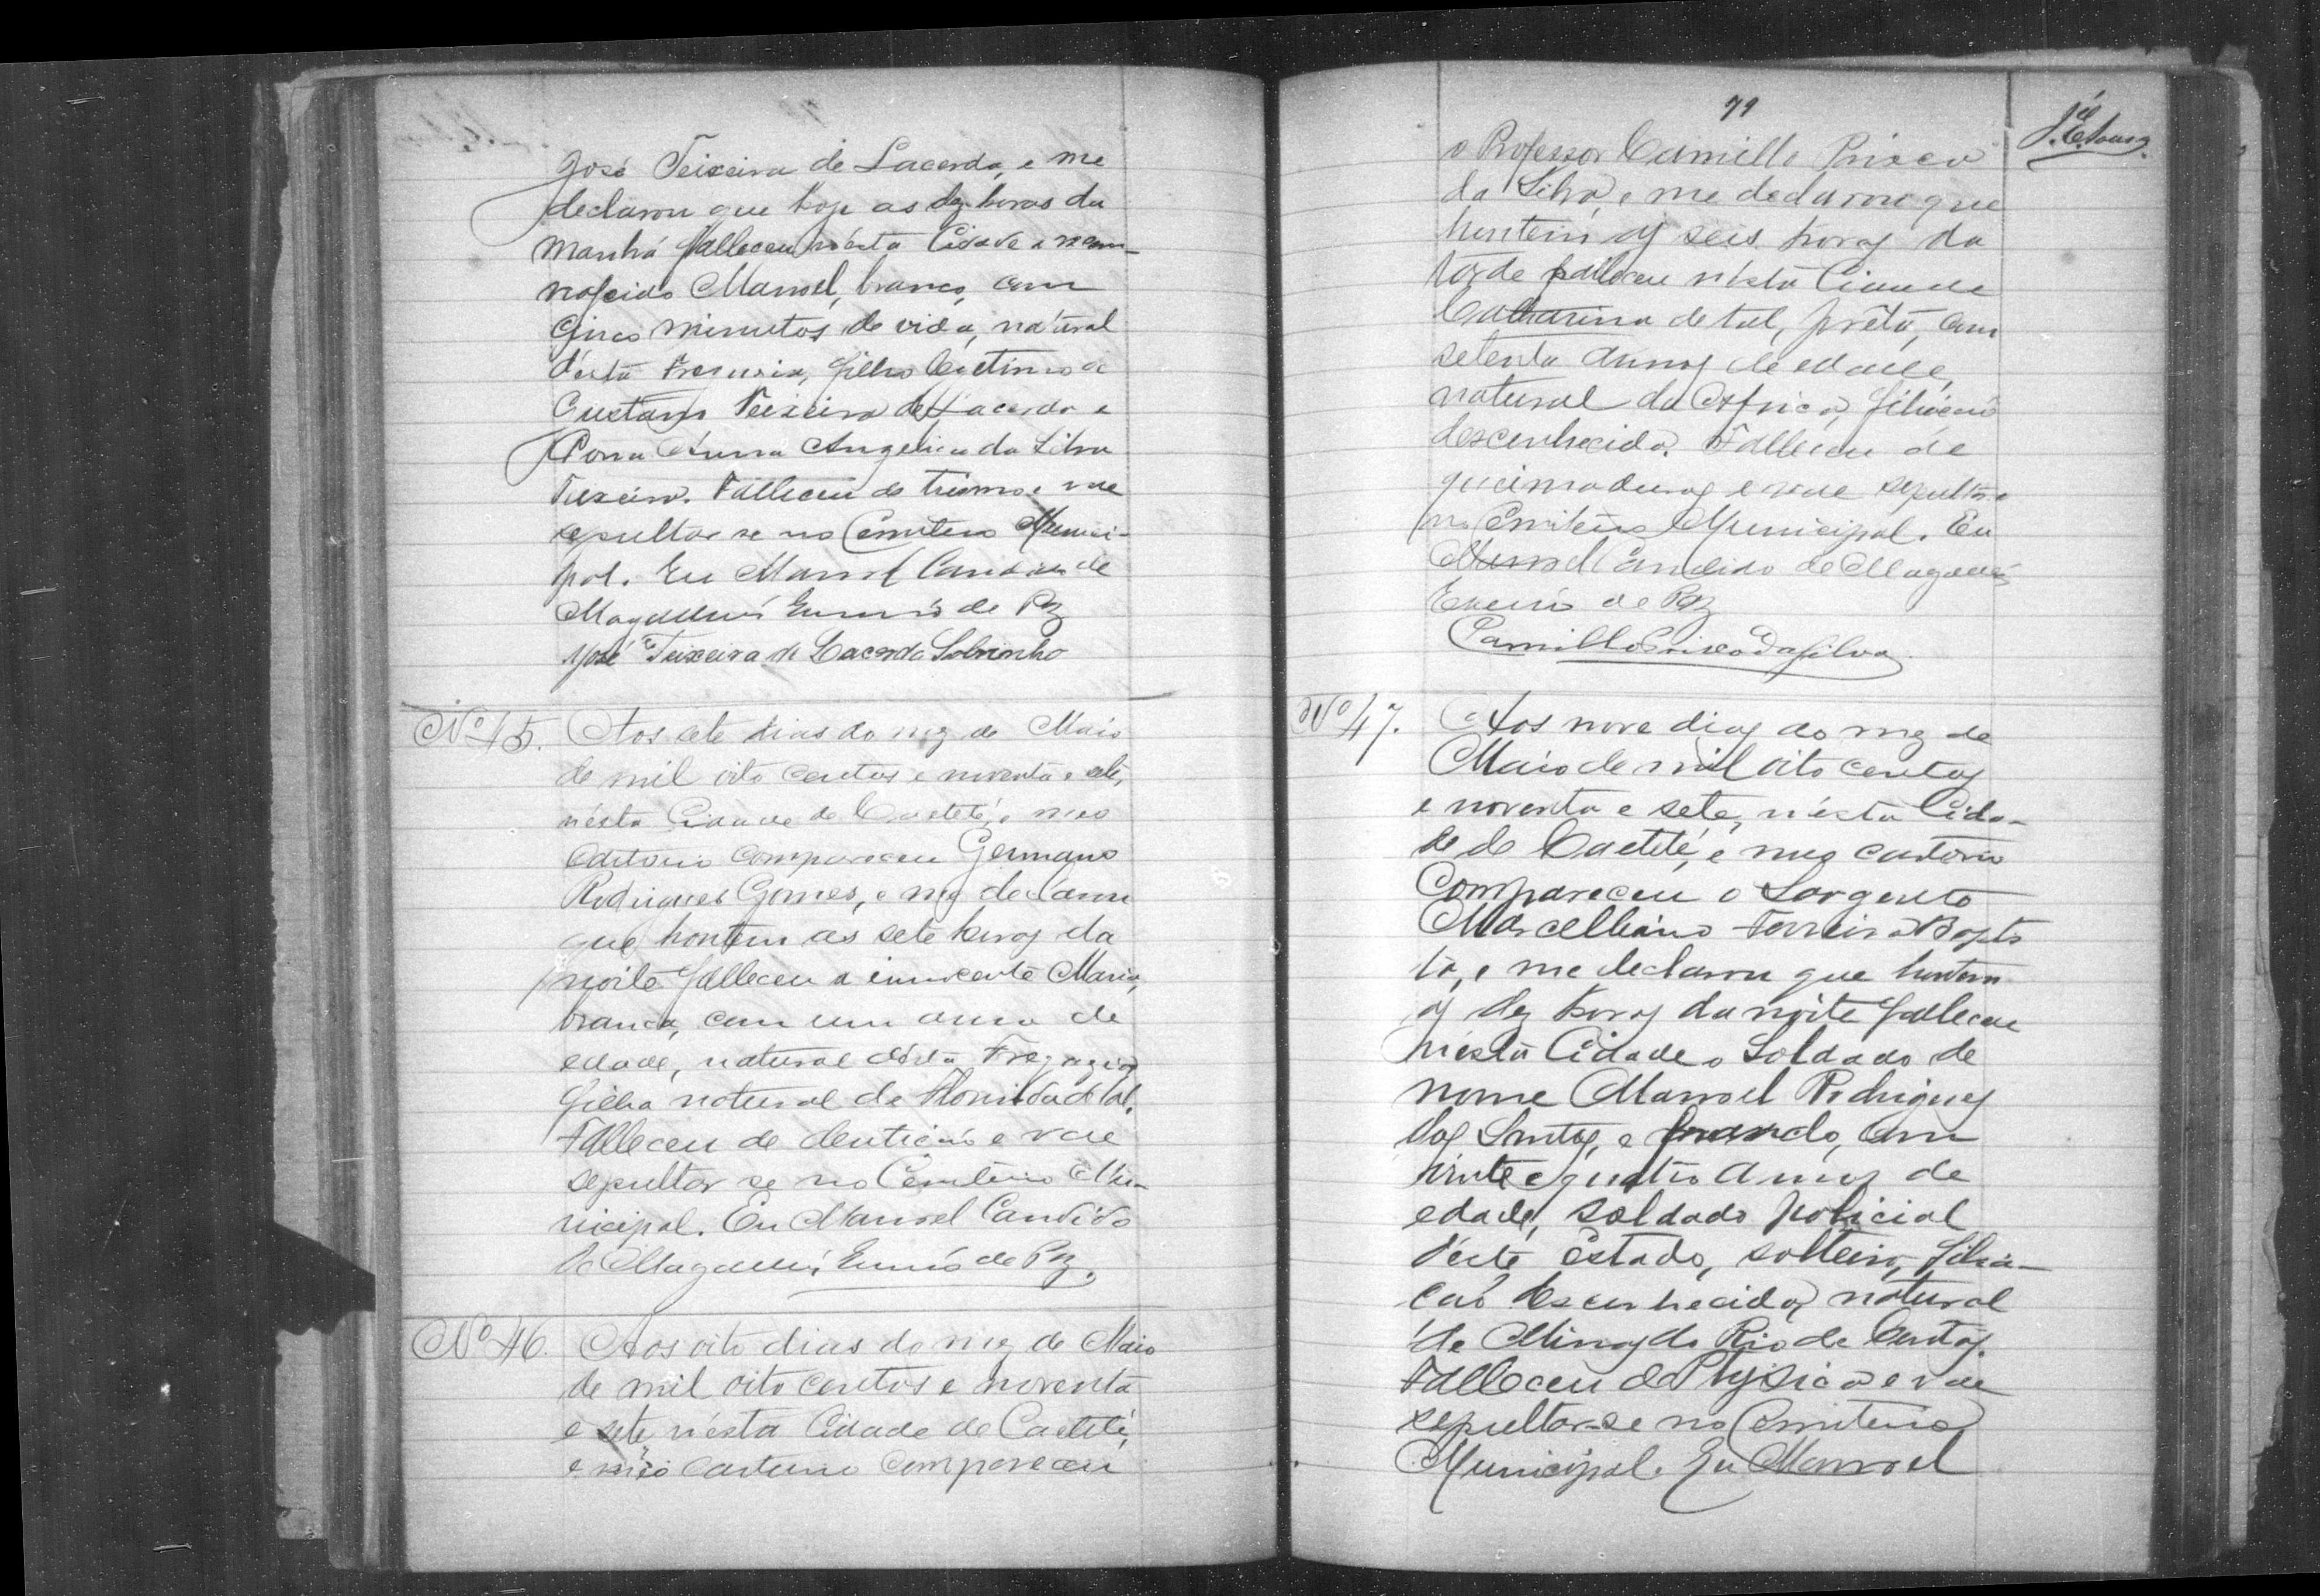 José Teixeira de Lacerda, e me
declarou que hoje as dez horas da
manhã falleceu n'ésta Cidade o recem-
nascido Manoel, branco, com
cinco minutos de vida, natural
d'ésta Freguezia, filho legitimo de
Teixeira de Lacerda e
Dona Anna Angelica da Silva
Teixeira. Falleceu de trismo e vae
sepultar se no Cemiterio Munici-
pal. Eu Manoel Candido de
Magalhães Escrivão de Paz
José Teixeira de Lacerda Sobrinho
Nº 45. Aos sete dias do mez de Maio
de mil oito centos e noventa e sete,
n'ésta Cidade de Caeteté, e meo
Cartorio compareceu Germano
Rodrigues Gomes, e me declarou
que hontem as sete horas da
noite falleceu a innocente Maria,
branca, com um anno de
edade, natural d'ésta Freguezia,
filha natural de de tal.
Falleceu de dentição e vae
sepultar se no Cemiterio Mu-
nicipal. Eu Manoel Candido
de Magalhães Escrivão de Paz.
Nº 46. Aos oito dias do mez de Maio
de mil oito centos e noventa
e sete, n'ésta Cidade de Caeteté,
e meo Cartorio compareceu
79
o Professor Camillo Prisco
da Silva, e me declarou que
hontem as seis horas da
tarde falleceu n'ésta Cidade
Catharina de tal, prêta, com
setenta annos de edade,
natural da Africa, filiação
desconhecida. Falleceu de
queimaduras e vae sepultar-se
no Cemiterio Municipal. Eu
Manoel Candido de Magalhães
Escrivão de Paz
Camillo Prisco da Silva
Nº 47. Aos nove dias do mez de
Maio de mil oito centos
e noventa e sete, n'ésta Cida-
de de Caeteté, e meo cartorio
Compareceu o Sargento
Marcelliano Ferreira Baptis
ta, e me declarou que hontem
as dez horas da noite falleceu
n'ésta Cidade o Soldado de
nome Manoel Rodrigues
dos Santos, e pardo, com
vinte e quatro annos de
edade, soldado policial
d'éste Estado, solteiro, filia-
ção desconhecida, natural
de Minas do Rio de Contas.
Falleceu de Phtysica e vae
sepultar-se no Cemiterio
Municipal. Eu Manoel